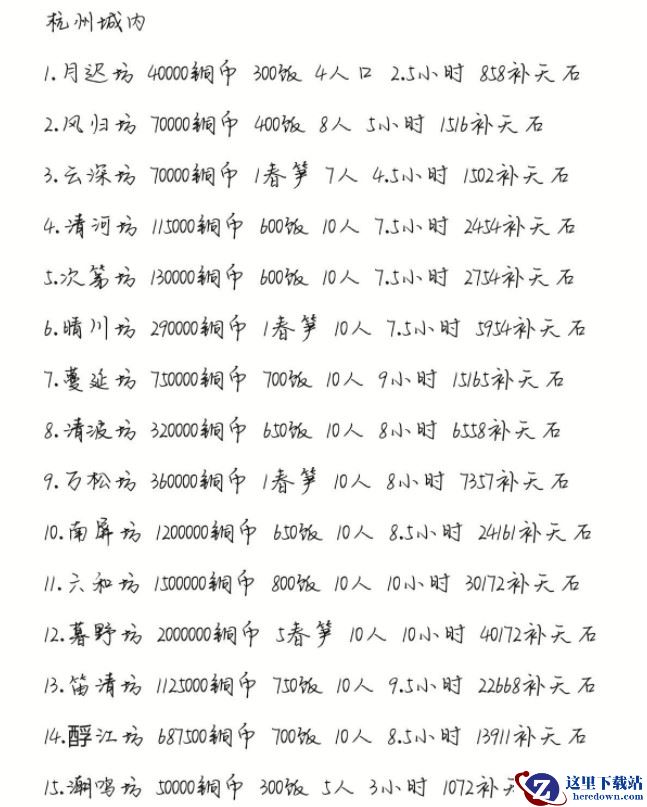 杭州城内
1.月迟坊 40000铜币 300饭 4人口 2.5小时 858补天石
2.风归坊 70000铜币 400饭 8人 5小时 1516补天石
3.云深坊 70000铜币 1春笋 7人 4.5小时 1502补天石
4.清河坊 115000铜币 600饭 10人 7.5小时 2454补天石
5.次第坊 130000铜币 600饭 10人 7.5小时 2754补天石
6.晴川坊 290000铜币 1春笋 10人 7.5小时 5954补天石
7.蔓延坊 750000铜币 700饭 10人 9小时 15165补天石
8.清波坊 320000铜币 650饭 10人 8小时 6558补天石
9.万松坊 360000铜币 1春笋 10人 8小时 7357补天石
10.南屏坊 1200000铜币 650饭 10人 8.5小时 24161补天石
11.六和坊 1500000铜币 800饭 10人 10小时 30172补天石
12.暮野坊 2000000铜币 5春笋 10人 10小时 40172补天石
13.笛清坊 1125000铜币 750饭 10人 9.5小时 22668补天石
14.醇江坊 687500铜币 700饭 10人 8.5小时 13911补天石
15.潮鸣坊 50000铜币 300饭 5人 3小时 1072补天
这里下载站
heredown.com